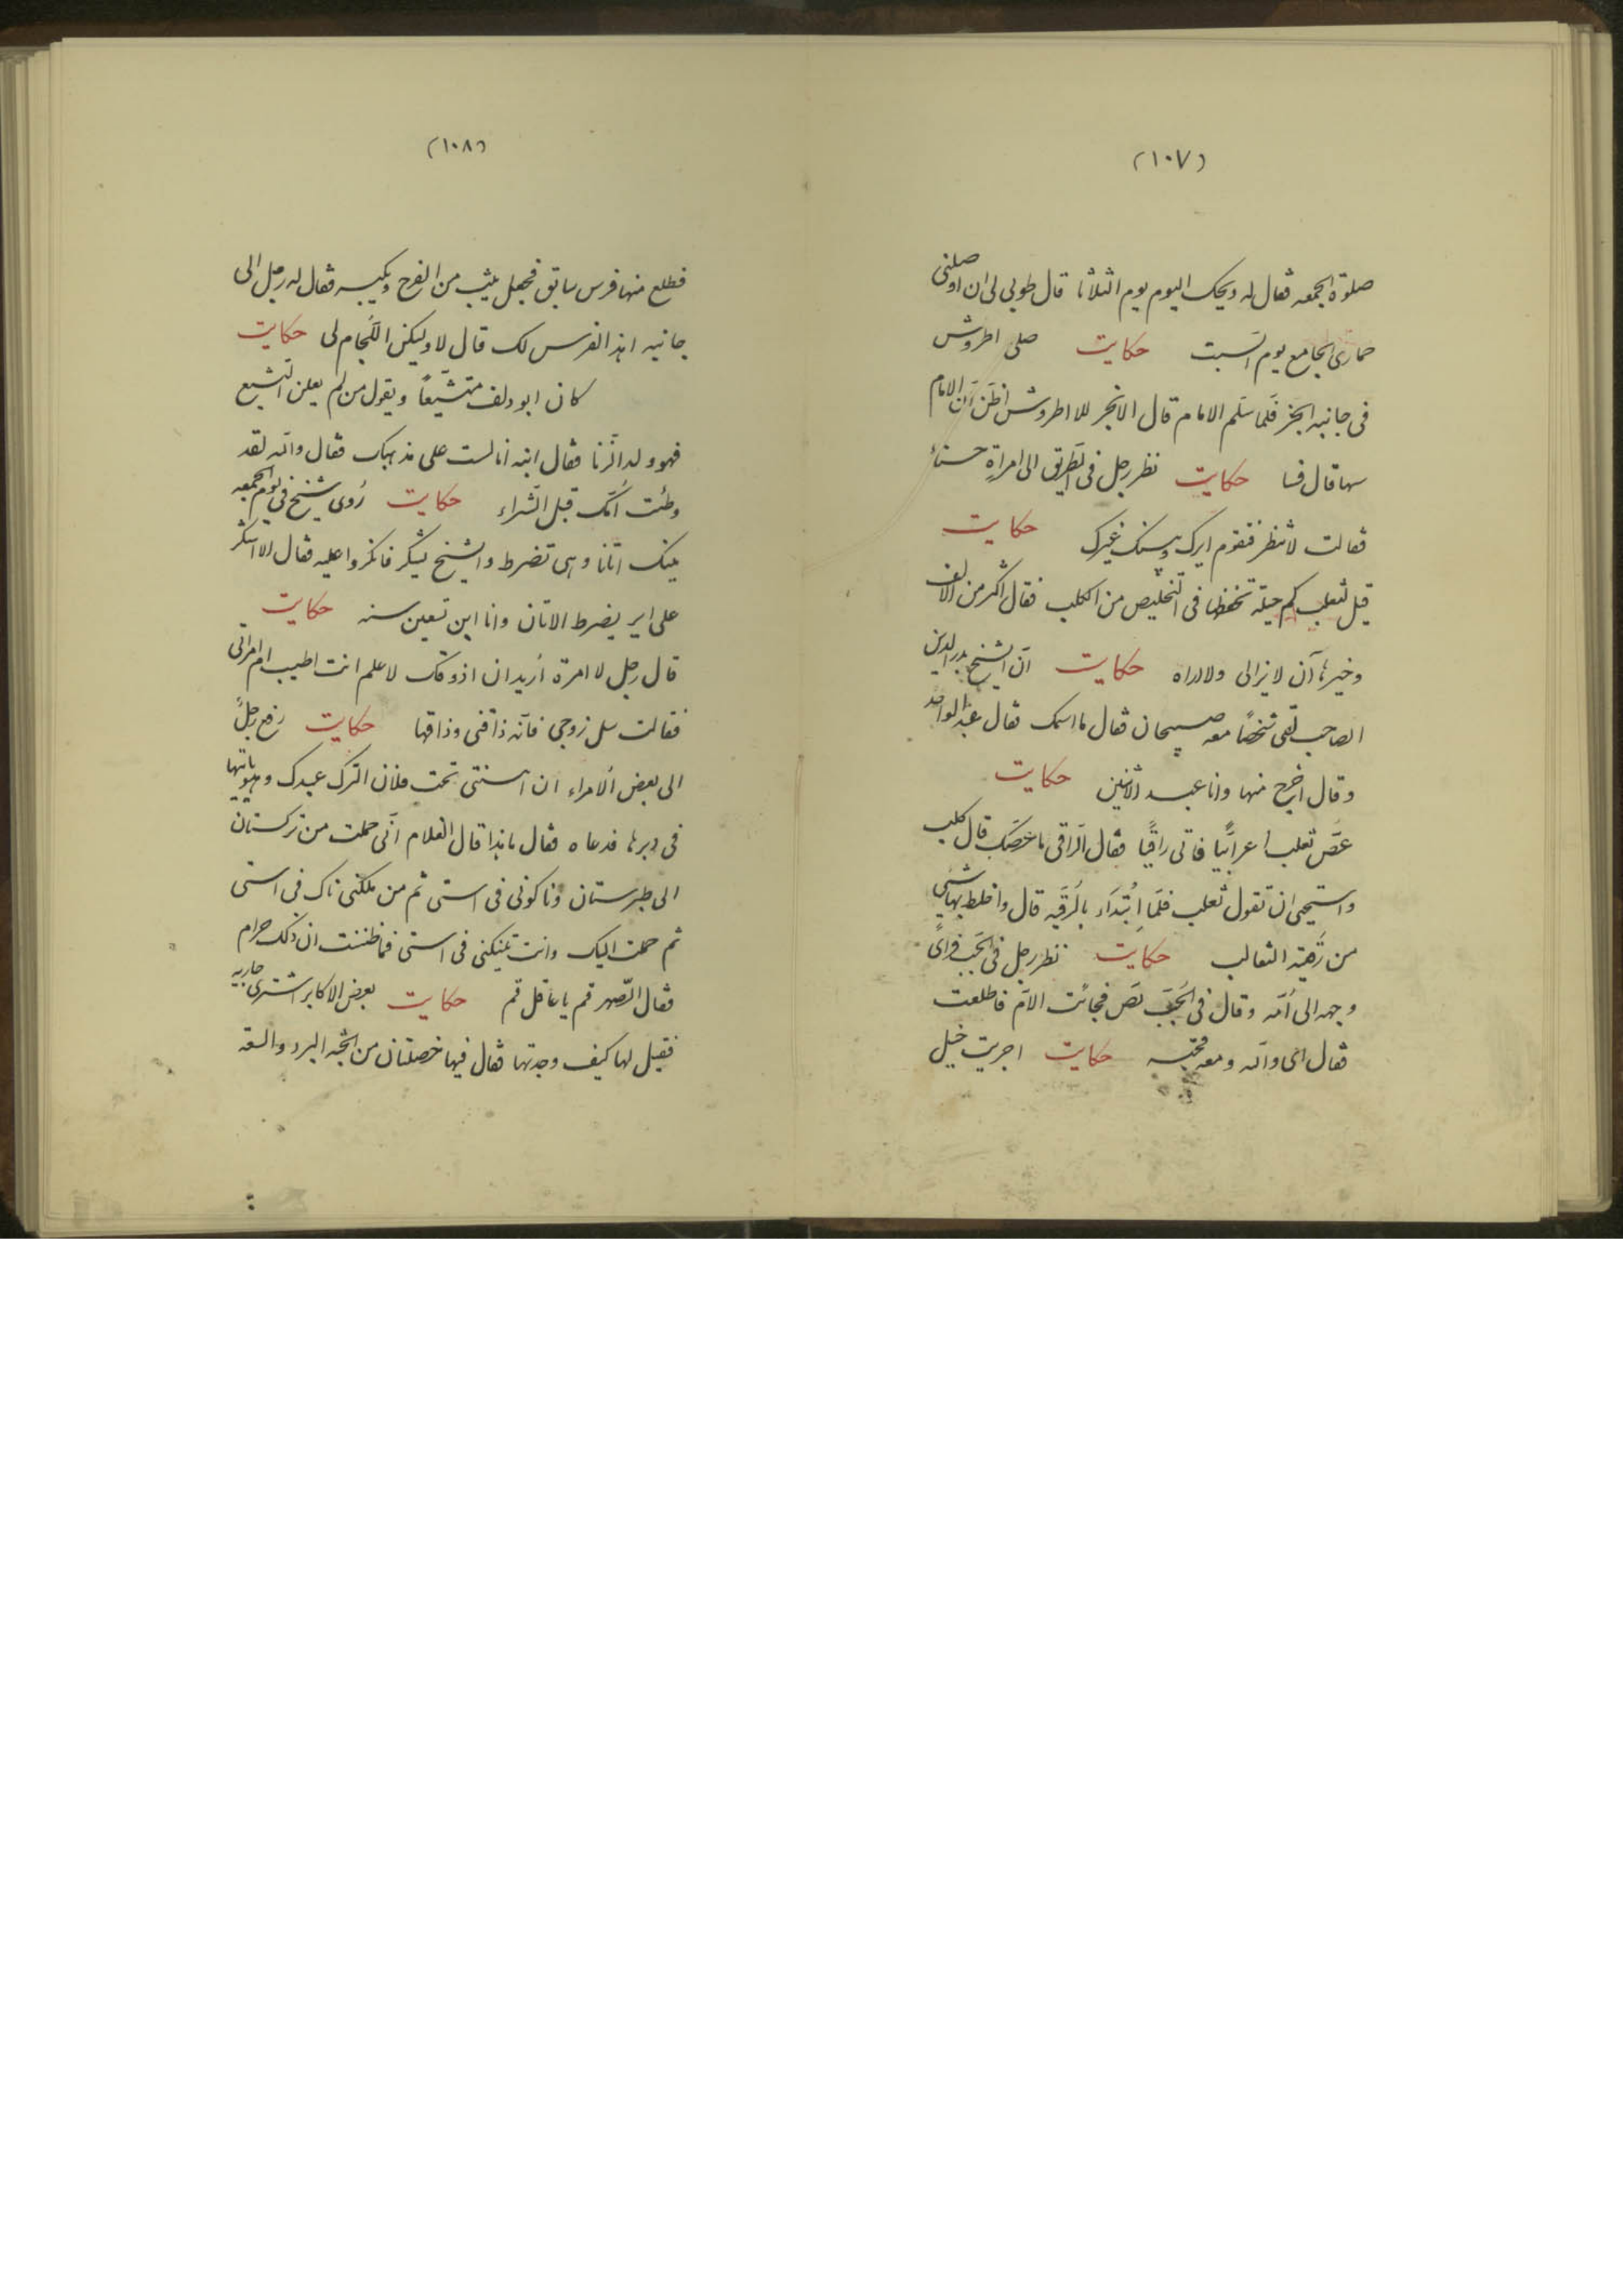 (١٠٧)
صلوة الجمعه فقال له ويحك اليوم يوم الثلثا قال طوبى لى ان اوصلنى
حمارى الجامع يوم السبت حكايت صلى اطروش
فى جانبه ابخر فلما سلم الامام قال الابخر للاطروش اظن ان الامام
سها قال فسا حكايت نظر رجل فى الطريق الى امراة حسناء
فقالت لا تنظر فيقوم ايرك وينيك غيرك حكايت
قيل لثعلب كم حيلة تحفظها فى التخليص من الكلب فقال اكثر من الالف
وخيرها ان لا يرانى ولا اراه حكايت ان الشيخ بدر الدين
الصاحب لقى شخصا معه صبيحان فقال ما اسمك فقال عبد الواحد
وقال اخرج منها وانا عبد الاثنين حكايت
عض ثعلب اعرابيا فاتى راقيا فقال الراقى ما عضك قال كلب
واستحيى ان تقول ثعلب فلما ابتداء بالرقيه قال واخلط بها شئى
من رقية الثعالب حكايت نظر رجل فى الحب فراى
وجهه الى امه وقال فى الجب لص فجائت الام فاطلعت
فقال اى والله ومعه قحبه حكايت اجريت خيل
(١٠٨)
فطلع منها فرس سابق فجعل يثب من الفرح ويكبه فقال له رجل الى
جانبه اهذا الفرس لك قال لا وليكن اللجام لى حكايت
كان ابو دلف متشيعا ويقول من لم يعلن التشيع
فهو ولد الزنا فقال ابنه انا لست على مذهبك فقال والله لقد
وطئت امك قبل الشراء حكايت روى شيخ فى يوم الجمعه
ينيك اتانا وهى تضرط والشيخ يشكر فانكروا عليه فقال الا اشكر
على اير يضرط الاتان وانا ابن تسعين سنه حكايت
قال رجل لامرة اريد ان اذوقك لا علم انت اطيب ام امراتى
فقالت سل زوجى فانه ذاقنى وذاقها حكايت رفع رجل
الى بعض الامراء ان ابنتى تحت فلان الترك عبدك وهو ياتيها
فى دبرها فدعاه فقال ما هذا قال الغلام انى حملت من تركستان
الى طبرستان وناكونى فى استى ثم من ملكنى ناك فى استى
ثم حملت اليك وانت تنيكنى فى استى فما ظننت ان ذلك حرام
فقال الصهر قم يا عاقل قم حكايت بعض الاكابر اشترى جاريه
فقيل لها كيف وجدتها فقال فيها خصلتان من الجنه البرد والسعة